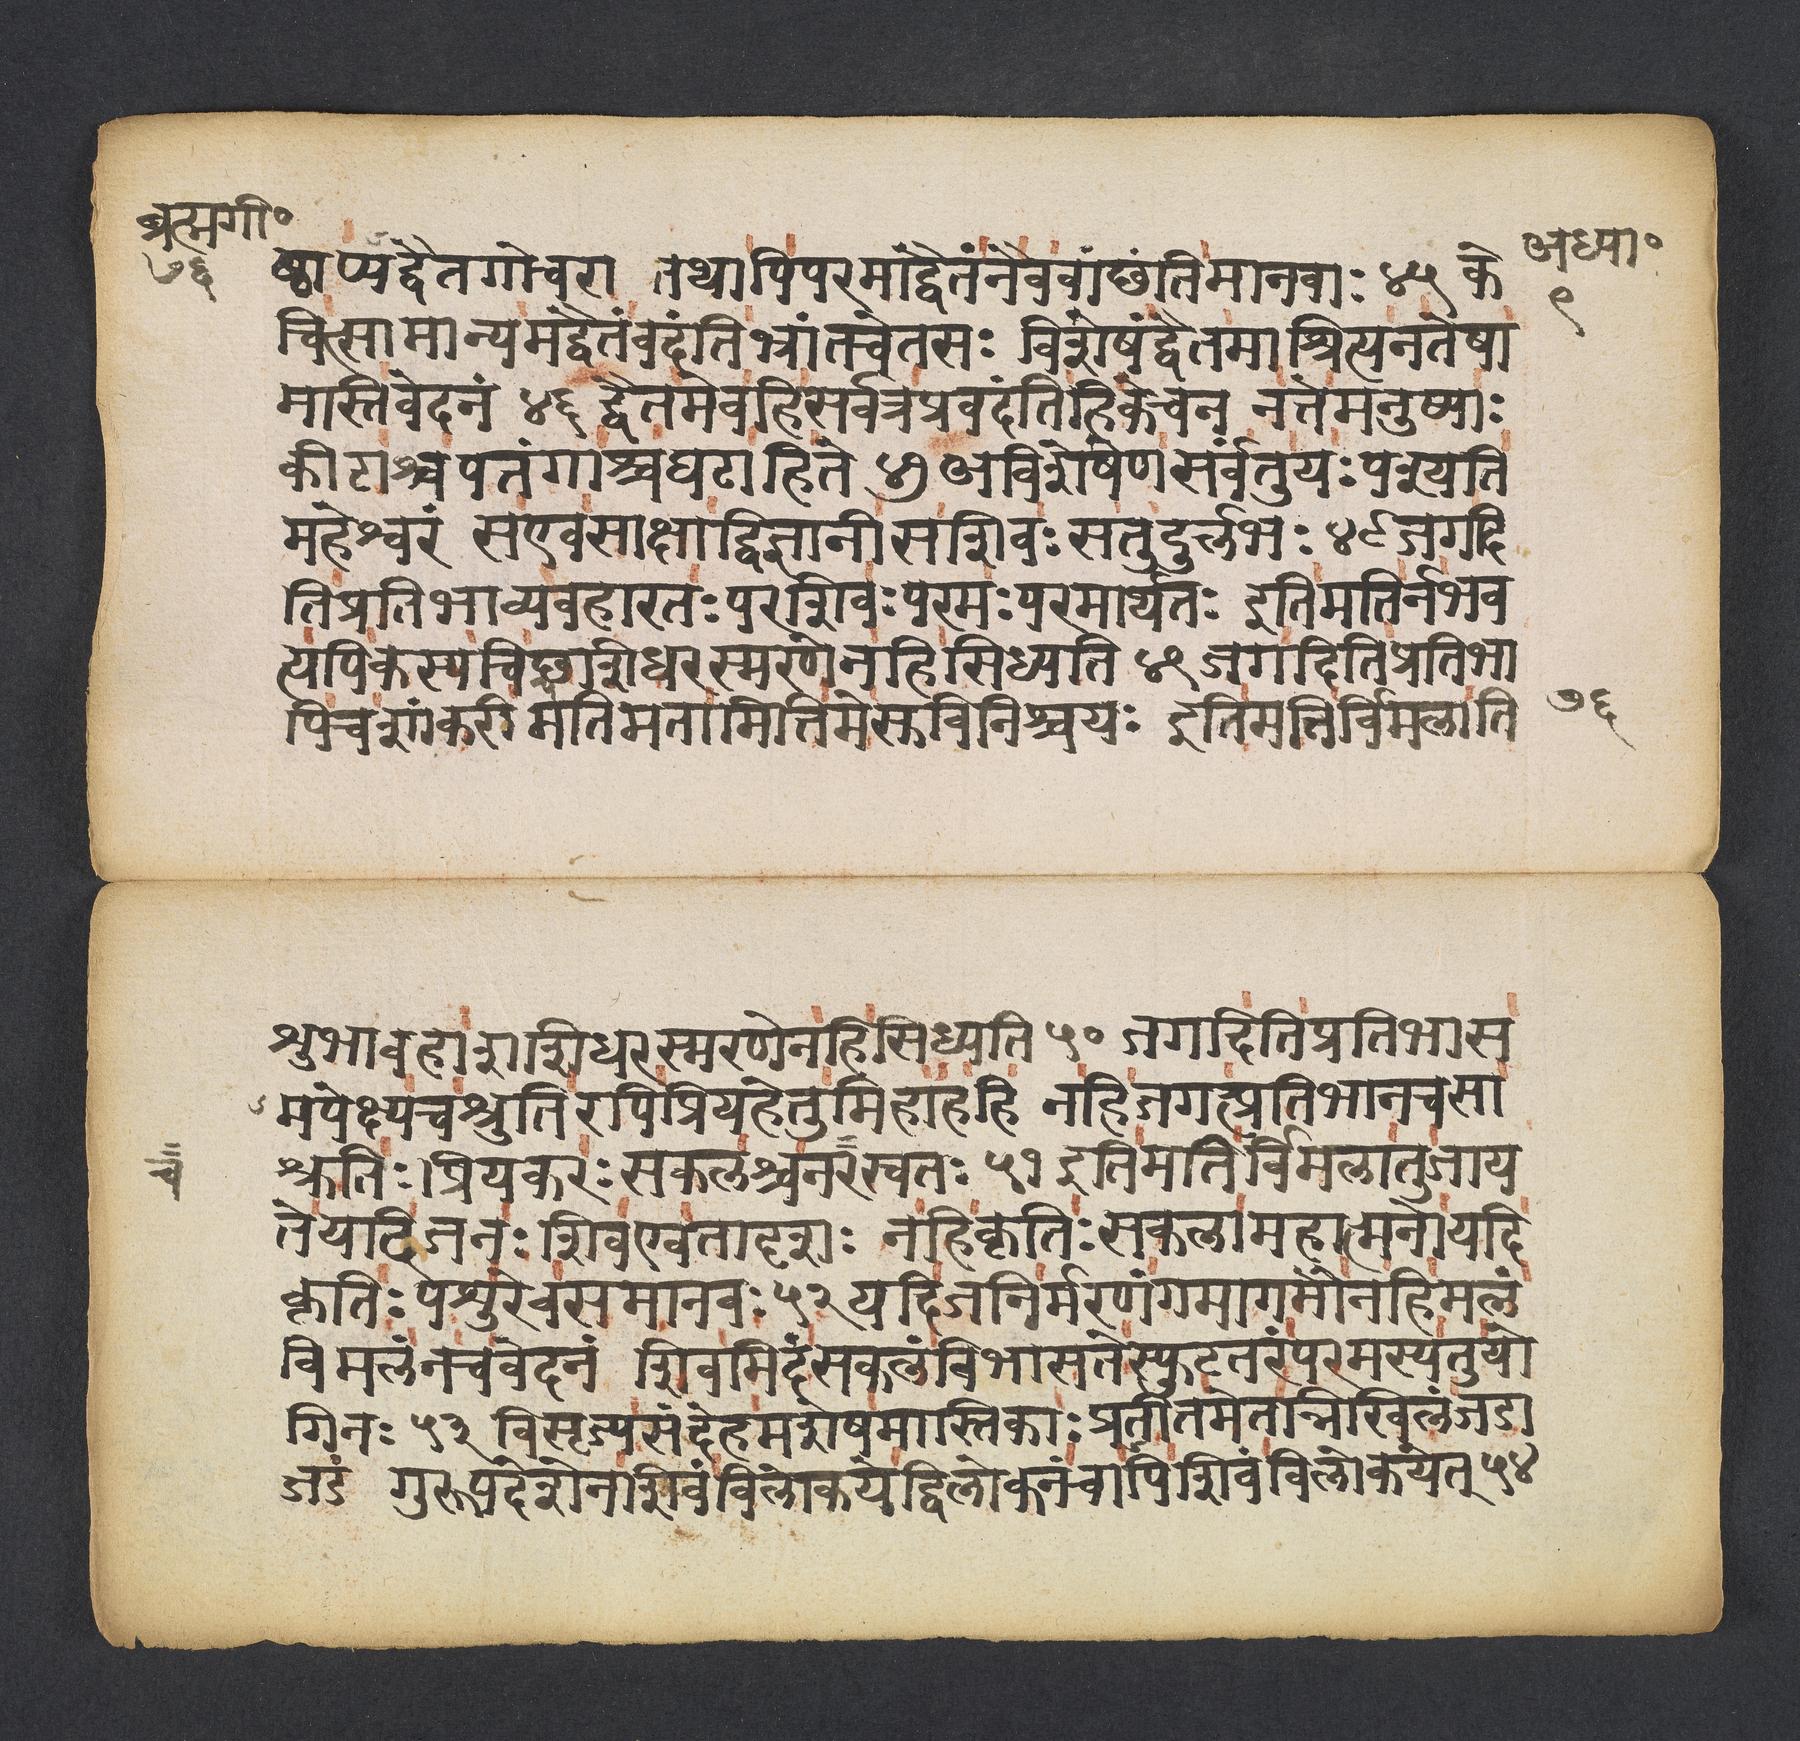 ब्रह्मगी॰
७६
अध्या॰
९
ष्ठाप्यद्वैतगोचरा तथापिपरमाद्वैतंनैववांछंतिमानवाः ४५ के
चित्सामान्यमद्वैतंवदंतिभ्रांतचेतसः विशेषंद्वैतमाश्रित्यनतेषा
मास्तिवेदनं ४६ द्वैतमेवहिसर्वत्रप्रवदंतिहिकेचन नतेमनुष्याः
कीटाश्चपतंगाश्चघटाहिते ४७ अविशेषेणसर्वंतुयःपश्यति
महेश्वरं सएवसाक्षाद्विज्ञानीसशिवःसतुदुर्लभः ४८ जगदि
तिप्रतिभाव्यवहारतःपरशिवःपरमःपरमार्थतः इतिमतिर्नभव
त्यपिकस्यचिछशिधरस्मरणेनहिसिध्यति ४९ जगदितिप्रतिभा
पिचशांकरीमतिमतामितिमेस्तविनिश्चयः इतिमतिर्विमलाति
७६
शुभावहाशशिधरस्मरणेनहिसिध्यति ५० जगदितिप्रतिभास
मपेक्ष्यचश्रुतिरपिप्रियहेतुमिहाहहि नहिजगत्प्रतिभानचसा
श्रुतिः।प्रियकरःसकलश्चनरस्वतः ५१ इतिमतिर्विमलातुजाय
चं
तेयाद्विजनःशिवएवतादृशः नहिकृतिःसकलामहात्मनोयदि
कृतिःपशुरेवसमानवः ५२ यदिजनिर्मरणंगमागमौनहिमलं
विमलंनचवेदनं शिवमिदंसकलंविभासतेस्फुटतरंपरमस्यतुयो
गिनः ५३ विसृज्यसंदेहमशेषमास्तिकाःप्रतीतमेतान्निखिलंजडा
जडं गुरूपदेशेनशिवंविलोकयेद्विलोकनंचापिशिवंविलोकयेत् ५४